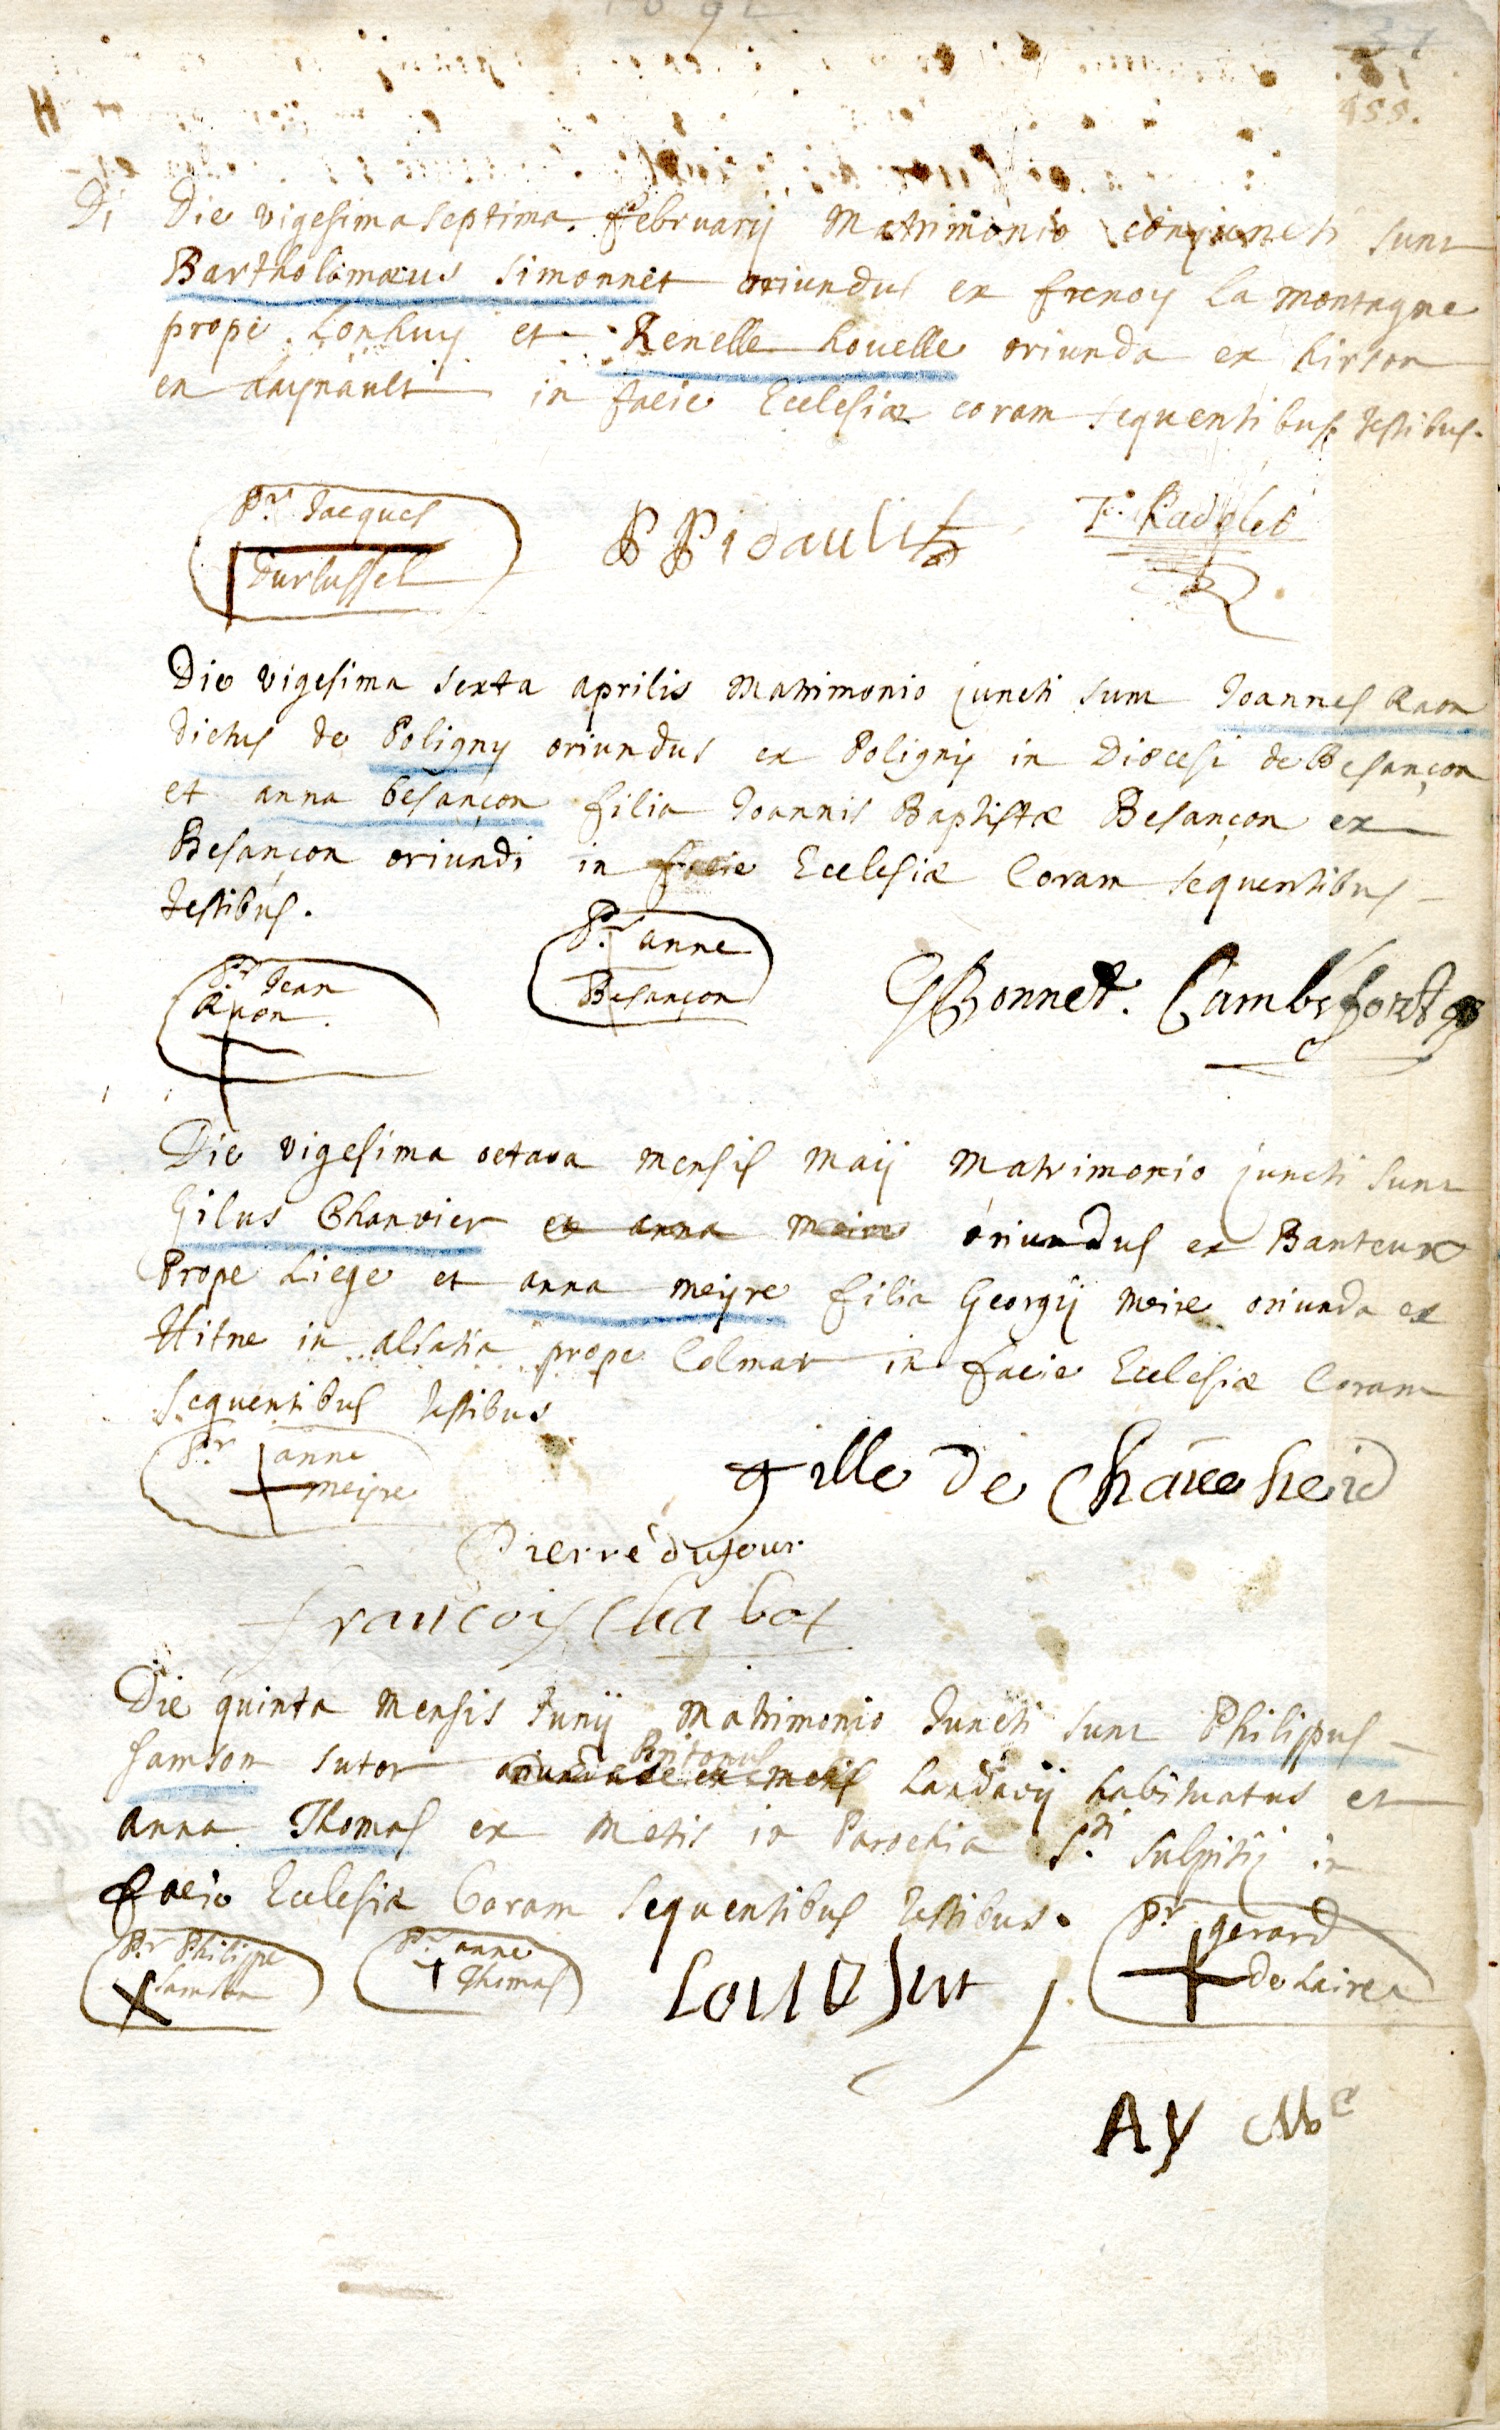 H
455.
Di Die vigesima septima februarij Matrimonio conjuncti sunt
Bartholomæus Simonnet oriundus ex frenoy la montagne
prope Lonhuy et Renelle Louelle oriunda ex hirson
en haynault in facie Ecclesiæ coram sequentibus testibus.
Pr Jacques
Durbussel
PPidault
F. Radelet
Die vigesima sexta aprilis Matrimonio juncti sunt Joannes Raon
dictus de Poligny oriundus ex Polignij in Diocesi de Besançon
et anna besançon filia Joannis Baptistæ Besançon ex
Besançon oriundi in facie Ecclesiæ Coram sequentibus
testibus.
Pr Jean
Raon.
Pr anne
Besançon
GBonnet. Cambefort
Die vigesima octava mensis maij Matrimonio juncti sunt
Gilus Chanvier et anna meire oriundus ex Banteux
Prope Liege et anna meijre filia Georgij meire oriunda ex
Hitne in alsatia prope Colmar in facie Ecclesiæ Coram
sequentibus testibus
Pr anne
meijre
gille de Chaneheid
Pierre dufour
francois Chabot
Die quinta Mensis Junij Matrimonio Juncti sunt Philippus
Samson sutor Britonus Landavij habituatus et
anna Thomas ex Metis in Parochia Sti Sulpitij in
facie Ecclesiæ Coram sequentibus testibus.
Pr Philippe
Samson
Pr anne
Thomas
Pr gerard
de Lairea
AY